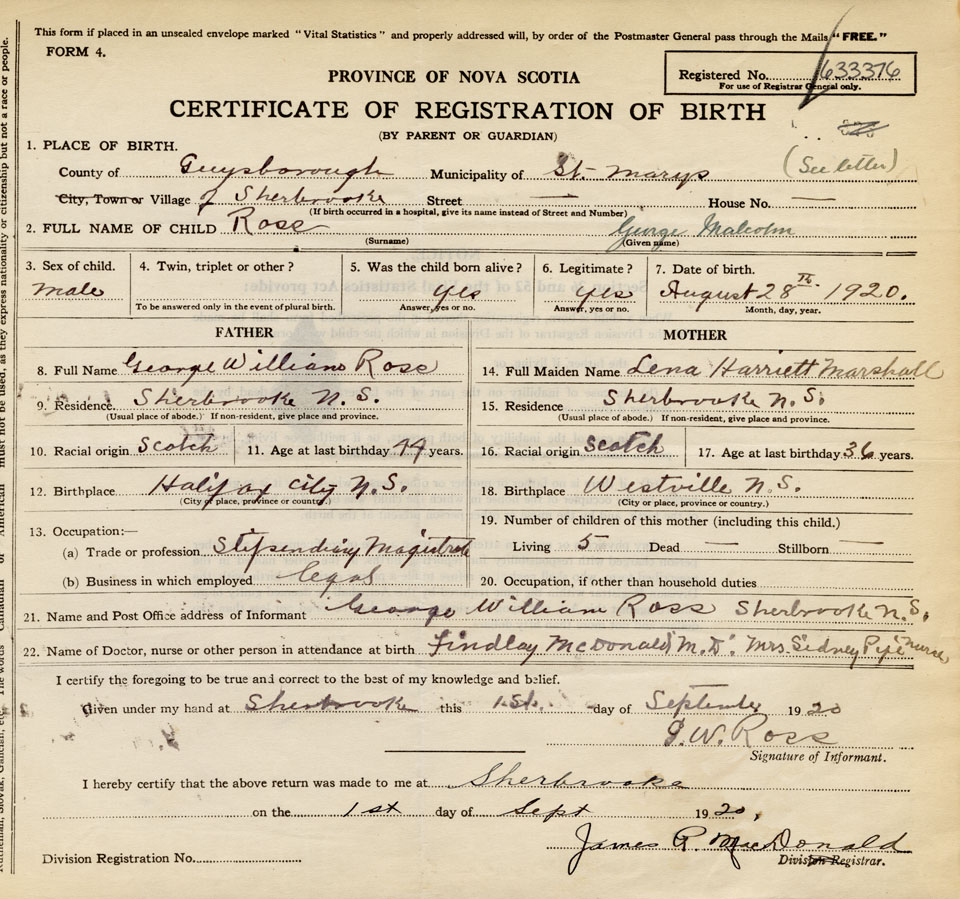 This form if placed in an unsealed envelope marked "Vital Statistics" and properly addressed will, by order of the Postmaster General pass through the Mails "FREE."
FORM 4.
PROVINCE OF NOVA SCOTIA
Registered No. 633376
For use of Registrar General only.
CERTIFICATE OF REGISTRATION OF BIRTH
(BY PARENT OR GUARDIAN)
(See letter)
1. PLACE OF BIRTH.
County of Guysborough Municipality of St. Marys
City, Town or Village of Sherbrooke Street — House No. —
(If birth occurred in a hospital, give its name instead of Street and Number)
2. FULL NAME OF CHILD Ross George Malcolm
(Surname) (Given name)
3. Sex of child. 4. Twin, triplet or other? 5. Was the child born alive? 6. Legitimate? 7. Date of birth.
male yes yes August 28th 1920.
To be answered only in the event of plural birth. Answer, yes or no. Answer, yes or no. Month, day, year.
FATHER MOTHER
8. Full Name George William Ross 14. Full Maiden Name Lena Harriett Marshall
9. Residence Sherbrooke N.S. 15. Residence Sherbrooke N.S.
(Usual place of abode.) If non-resident, give place and province. (Usual place of abode.) If non-resident, give place and province.
10. Racial origin Scotch 11. Age at last birthday 44 years. 16. Racial origin Scotch 17. Age at last birthday 36 years.
12. Birthplace Halifax City N.S. 18. Birthplace Westville N.S.
(City or place, province or country.) (City or place, province or country.)
13. Occupation:— 19. Number of children of this mother (including this child.)
(a) Trade or profession Stipendiary Magistrate Living 5 Dead — Stillborn —
(b) Business in which employed legal 20. Occupation, if other than household duties
21. Name and Post Office address of Informant George William Ross Sherbrooke N.S.
22. Name of Doctor, nurse or other person in attendance at birth Findlay McDonald M.D. Mrs. Sidney Pye nurse
I certify the foregoing to be true and correct to the best of my knowledge and belief.
Given under my hand at Sherbrooke this 1st. day of September 1920
G.W. Ross
Signature of Informant.
I hereby certify that the above return was made to me at Sherbrooke
on the 1st day of Sept 1920,
James R. MacDonald
Division Registration No. Division Registrar.
must not be used, as they express nationality or citizenship but not a race or people.